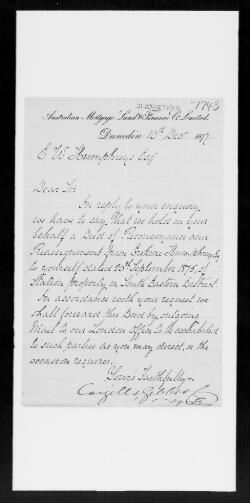 1743
Australian Mortgage Land & Finance Co. Limited.
Dunedin 10th Decr 1877
E W Humphreys Esq
Dear Sir
In reply to your enquiry
we have to say that we hold on your
behalf a Deed of Reconveyance and
Reassignment from Erskine Humphreys
to yourself dated 23rd September 1875, of
Station property in South Eastern District.
In accordance with your request we
shall forward this Deed by outgoing
Mail to our London Office to be exhibited
to such parties as you may direct, or the
occasion requires.
Yours Faithfully
Cargills, Gibbs & Co